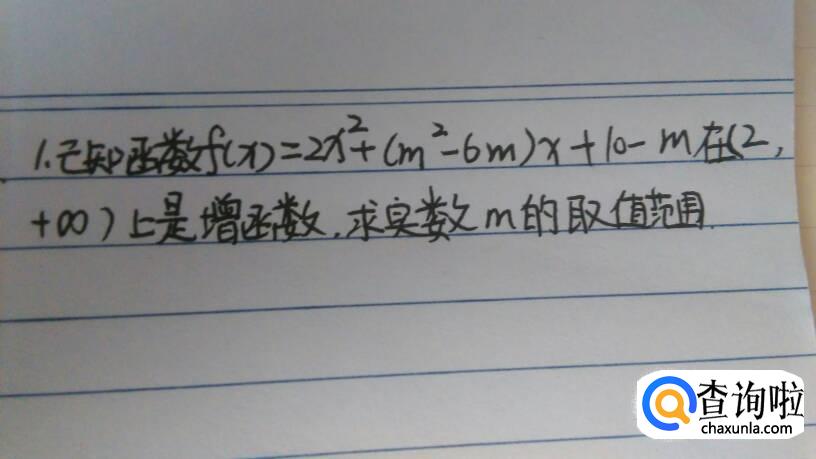 1.已知函数f(x)=2x²+(m²-6m)x+10-m在(2,
+∞)上是增函数,求实数m的取值范围.
查询啦
chaxunla.com